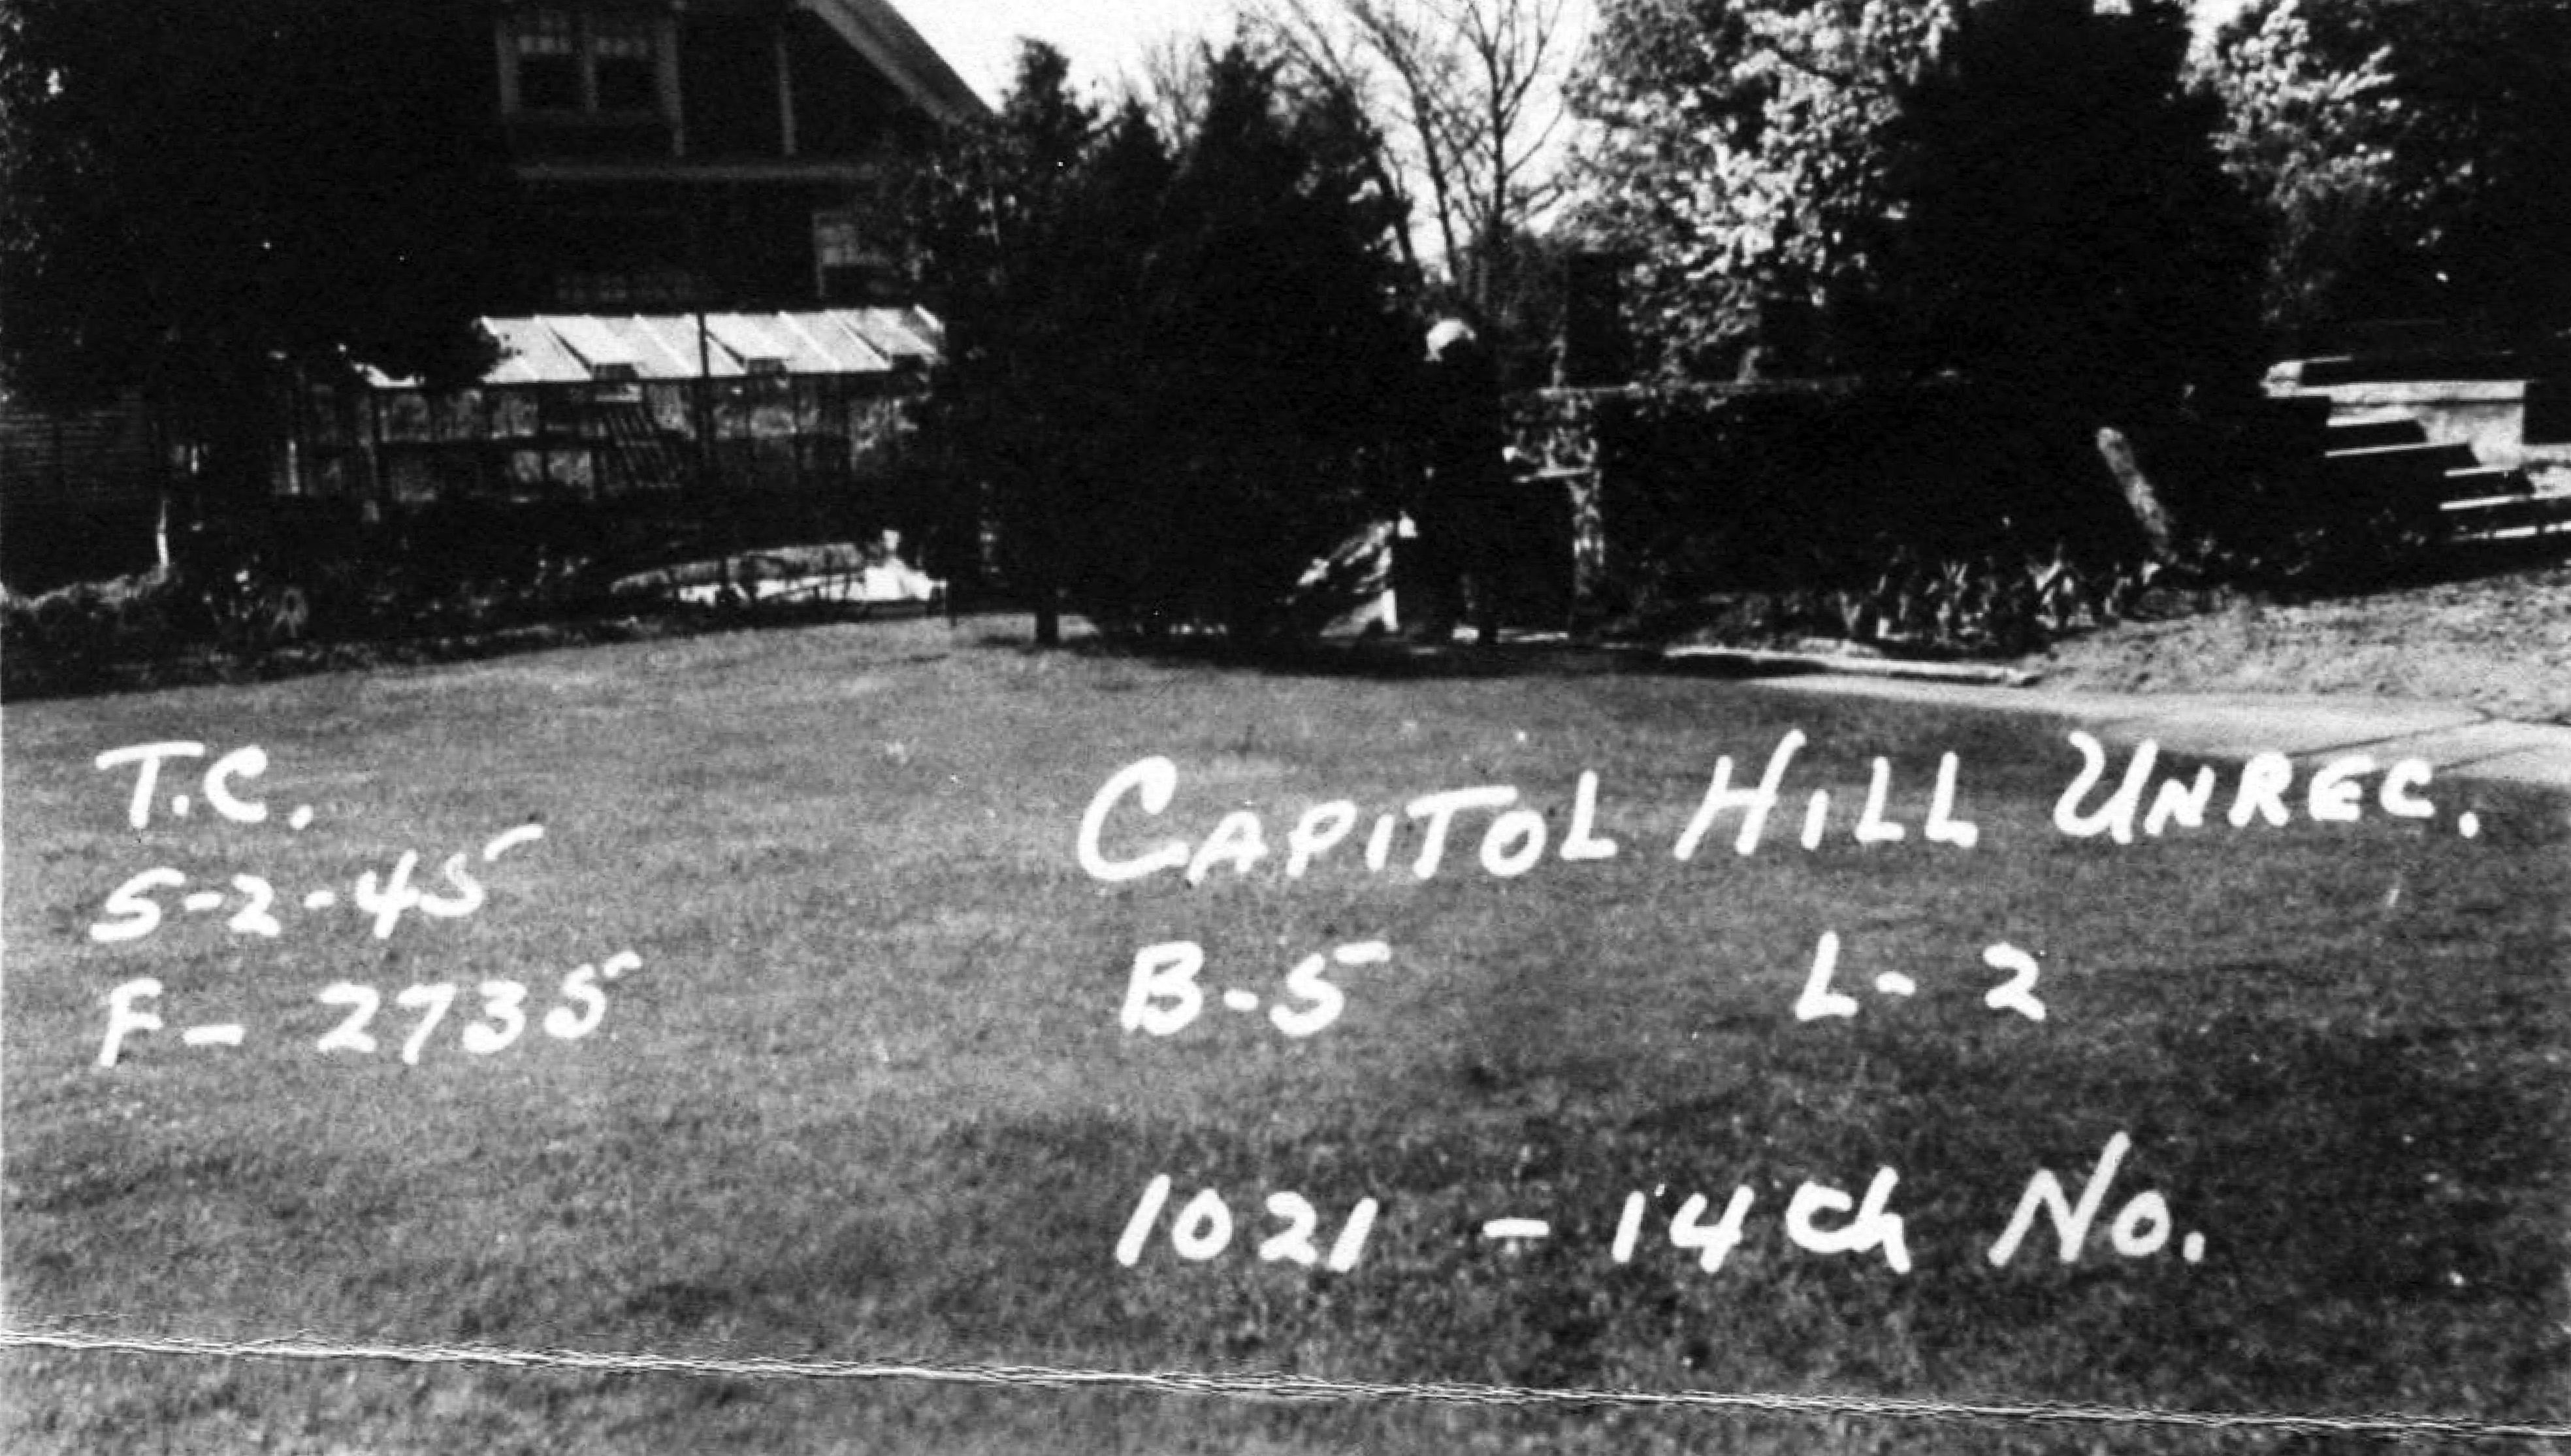 T.C.
5-2-45
F- 2735
CAPITOL HILL UNREC.
B-5 L-2
1021 - 14th No.